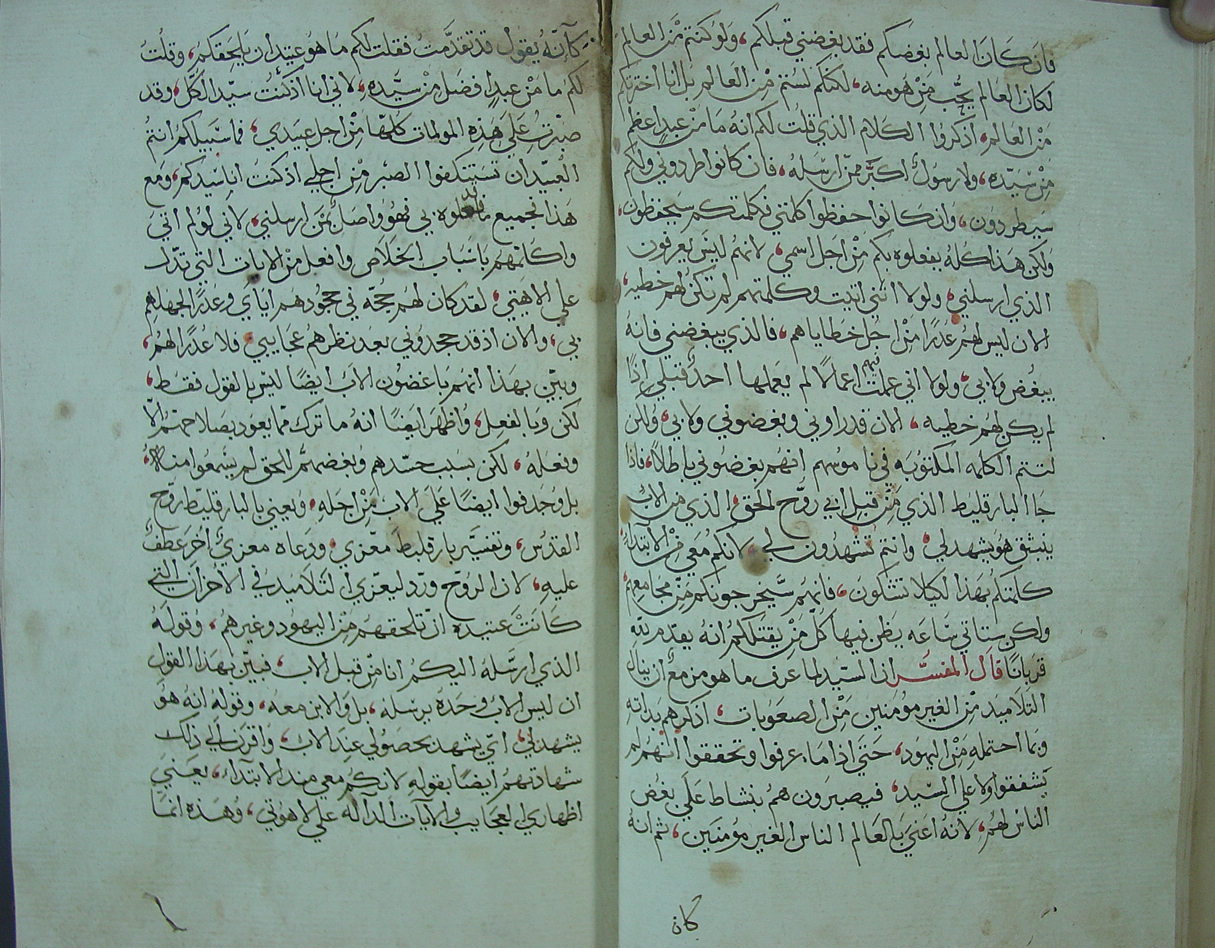 فان كان العالم يغضكم فقد يغضني قبلكم، ولو كنتم من العالم
لكان العالم يحب من هو منه، لكنكم لستم من العالم بل انا اخترتكم
من العالم، اذكروا الكلام الذي قلت لكم انه ما من عبدٍ اعظم
من سيّده، ولا رسول اكثر ممن ارسله، فان كانوا طردوني ولكم
سيطردون، وان كانوا حفظوا كلمتي فكلمتكم سيحفظون،
ولكن هذا كله يفعلوه بكم من اجل اسمي، لانهم ليس يعرفون
الذي ارسلني، ولولا انني اتيت وكلمتهم لم تكن لهم خطيه،
الان ليس لهم عذرًا من اجل خطاياهم، فالذي يبغضني فانه
يبغض ولابي، ولولا اني عملت فيهم اعمالاً لم يعملها احد قبلي اذًا
لم يكن لهم خطيه، الان قد راوني وبغضوني ولابي، ولكن
لتتم الكلمه المكتوبه في ناموسهم انهم بغضوني باطلاً، فاذا
جا البارقليط الذي من قبل ابي روح الحق، الذي من الاب
ينبثق هو يشهد لي، وانتم تشهدون لي، لانكم معي من الابتداء،
كلمتكم بهذا لكيلا تشكون، فانهم سيخرجونكم من مجامعهم
ولكن ستاتي ساعه يظن فيها كل من يقتلكم انه يقدم لله
قربانًا قال المفسّر ان السيد لما عرف ما هو مزمع ان ينال
التلاميد من الغير مومنين من الصعوبات، اذكرهم بداته
وبما احتمله من اليهود، حتى اذا ما عرفوا وتحققوا انهم لم
يشفقوا ولا على السيد، فيصبرون هم بنشاط على بغض
الناس لهم، لانه اعني بالعالم الناس الغير مومنين، ثم انه
كان
كانّه يقول قد تقدّمت فقلت لكم ما هو عتيد ان يلحقكم، وقلت
لكم ما من عبدٍ افضل من سيّده، لاني انا اذ كنت سيّد الكلّ، وقد
صبرت على هذه المولمات كلها من اجل عبيدي، فما سبيلكم انتم
العبيد ان تستنكفوا الصبر من اجلي اذ كنت انا سيدكم، ومع
هذا فجميع ما يفعلوه بي فهو واصل بمن ارسلني، لاني لو لم اتي
واكلمهم باسباب الخلاص وافعل من الايات التي تدل
على الاهيتي، لقد كان لهم حجّه في جحودهم اياي وعذر لجهلهم
بي، والان اذ قد جحدوني بعد نظرهم عجايبي، فلا عذرًا لهم،
وبيّن بهذا انهم باغضون الاب ايضًا ليس بالقول فقط،
لكن وبالفعل، واظهر ايضًا انه ما ترك مما يعود بصلاحهم الّا
وفعله، لكن بسبب حسدهم وبغضهم للحق لم يسمعوا منه،
بل وجدفوا ايضًا على الاب من اجله، ويعني بالبارقليط روح
القدس، وتفسير بارقليط معزي، ودعاه معزي اخر عطف
عليه، لان الروح ورد ليعزي التلاميد في الاحزان التي
كانت عتيده ان تلحقهم من اليهود وغيرهم، وقوله
الذي ارسله اليكم انا من قبل الاب، فبيّن بهذا القول
ان ليس الاب وحده يرسله، بل والابن معه، وقوله انه هو
يشهد لي، اي يشهد بحصولي عند الاب، واقرن الى ذلك
شهادتهم ايضًا بقوله لانكم معي منذ الابتداء، يعني
اظهاري العجايب والايات الداله على لاهوتي، وهذه انما